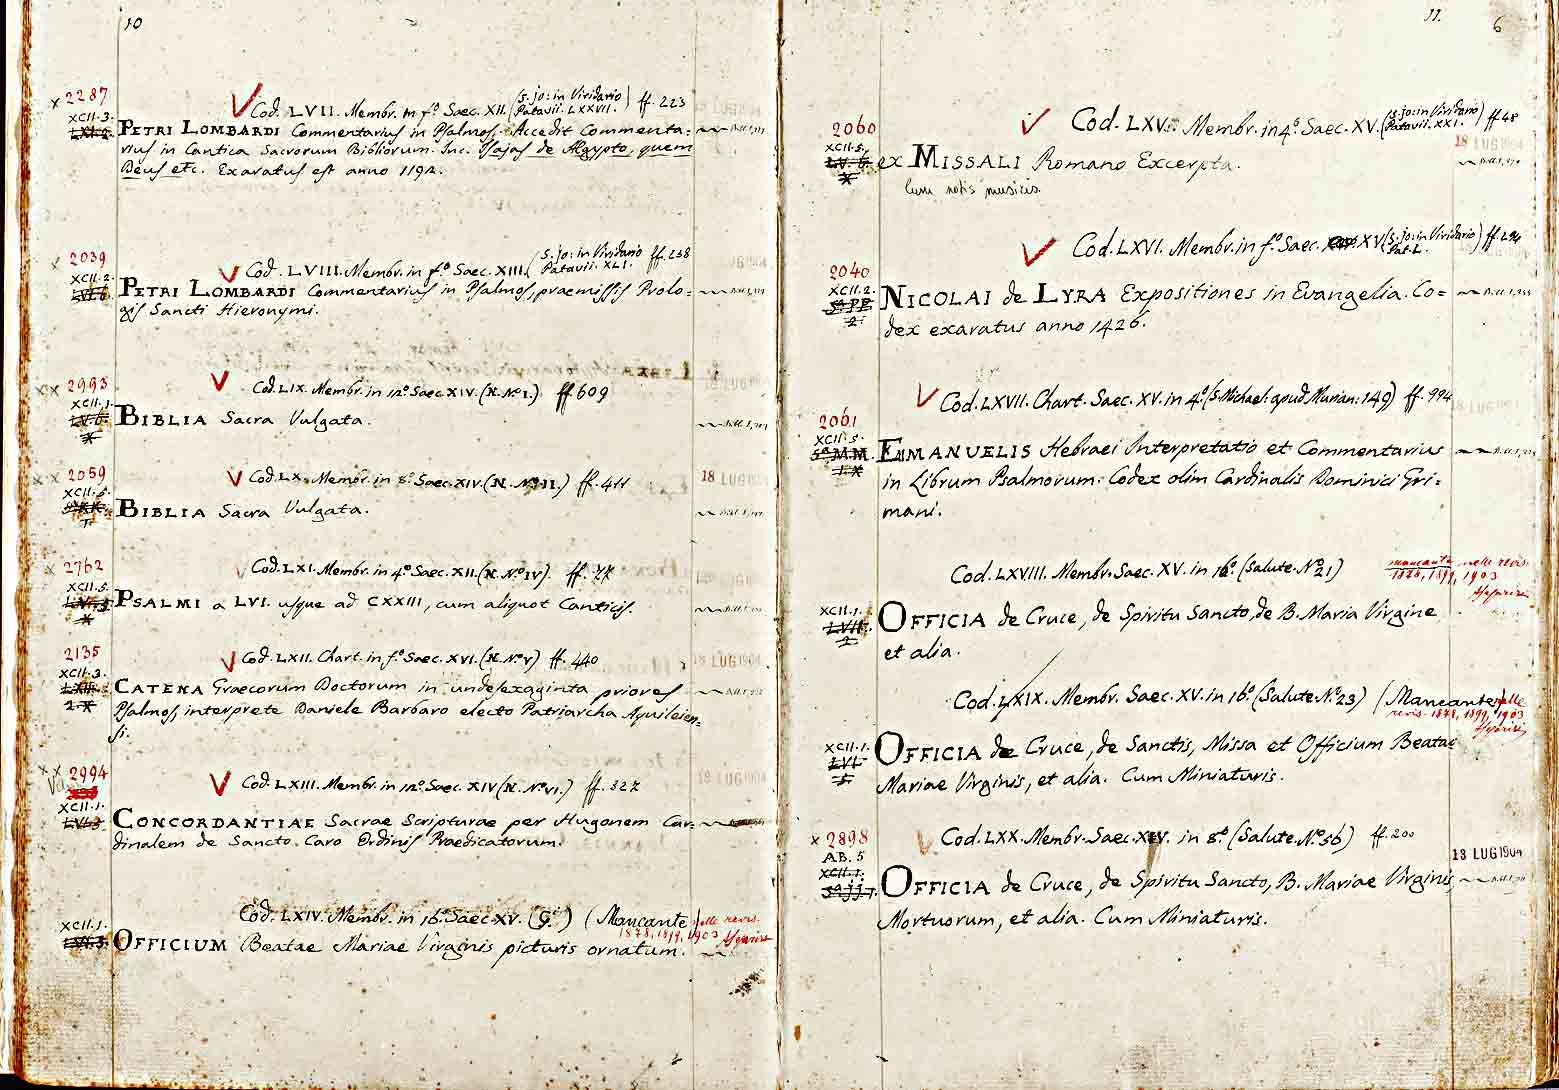 10
x 2287
Cod. LVII. Membr. in fº. Saec. XII. (S. Jo: in Viridario Patavii. LXXVII.) ff. 223
XCII. 3.
PETRI LOMBARDI Commentarius in Psalmos. Accedit Commenta:
rius in Cantica Sacrorum Bibliorum. Inc. Isajas de Aegypto, quem
Deus etc. Exaratus est anno 1192.
x 2039
Cod. LVIII. Membr. in fº. Saec. XIII. (S. Jo: in Viridario Patavii. XLI.) ff. 238
XCII. 2.
PETRI LOMBARDI Commentarius in Psalmos, praemissis Prolo:
gis Sancti Hieronymi.
x x 2993
Cod. LIX. Membr. in 12º. Saec. XIV. (N. Nº I.) ff. 609
XCII. 1.
BIBLIA Sacra Vulgata.
x x 2059
Cod. LX. Membr. in 8º. Saec. XIV. (N. Nº II.) ff. 411
18 LUG
XCII. 5.
BIBLIA Sacra Vulgata.
x 2762
Cod. LXI. Membr. in 4º. Saec. XII. (N. Nº IV.) ff. 77
XCII. 5.
PSALMI a LVI. usque ad CXXIII, cum aliquot Canticis.
2135
Cod. LXII. Chart. in fº. Saec. XVI. (N. Nº V) ff. 440
18 LUG 1904
XCII. 3.
CATENA Graecorum Doctorum in undesexaginta priores
Psalmos, interprete Daniele Barbaro electo Patriarcha Aquileien:
si.
x x 2994
Cod. LXIII. Membr. in 12º. Saec. XIV (N. Nº VI.) ff. 327
18 LUG 1904
XCII. 1.
CONCORDANTIAE Sacrae Scripturae per Hugonem Car:
dinalem de Sancto. Caro Ordinis Praedicatorum.
Cod. LXIV. Membr. in 16º. Saec. XV. (G.) (Mancante) nelle revis.
1878, 1899, 1903
XCII. 1.
OFFICIUM Beatae Mariae Virginis picturis ornatum.
11.
6
2060
Cod. LXV. Membr. in 4º. Saec. XV. (S. Jo: in Viridario Patavii. XXI.) ff. 48
18 LUG 1904
XCII. 5.
ex MISSALI Romano Excerpta.
Cum notis musicis.
2040
Cod. LXVI. Membr. in fº. Saec. XV (S. Jo: in Viridario Pat. L.) ff. 294
XCII. 2.
NICOLAI de LYRA Expositiones in Evangelia. Co=
dex exaratus anno 1426.
2061
Cod. LXVII. Chart. Saec. XV. in 4º. (S. Michael. apud Murian: 149) ff. 994
XCII. 5.
EMMANUELIS Hebraei Interpretatio et Commentarius
in Librum Psalmorum. Codex olim Cardinalis Dominici Gri=
mani.
Cod. LXVIII. Membr. Saec. XV. in 16º. (Salute. Nº 21)
mancante nelle revis.
1878, 1899, 1903
XCII. 1.
OFFICIA de Cruce, de Spiritu Sancto, de B. Maria Virgine
et alia.
Cod. LXIX. Membr. Saec. XV. in 16º. (Salute. Nº 23) (Mancante) nelle
revis. 1878, 1899, 1903
XCII. 1.
OFFICIA de Cruce, de Sanctis, Missa et Officium Beatae
Mariae Virginis, et alia. Cum Miniaturis.
x 2898
Cod. LXX. Membr. Saec. XIV. in 8º. (Salute. Nº 56) ff. 200
18 LUG 1904
AB. 5
XCII. 1.
OFFICIA de Cruce, de Spiritu Sancto, B. Mariae Virginis,
Mortuorum, et alia. Cum Miniaturis.